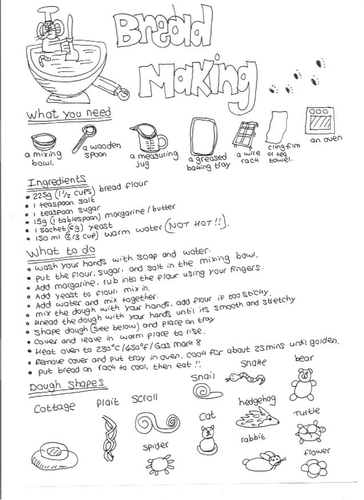 Bread
Making
What you need
a mixing bowl.
a wooden spoon
a measuring jug
a greased baking tray
a wire rack
cling film or tea towel.
an oven
Ingredients
• 225g (1 1/2 cups) bread flour
• 1 teaspoon salt
• 1 teaspoon sugar
• 15g (1 tablespoons) margarine / butter
• 1 sachet (6g) yeast
• 150 ml (2/3 cup) warm water (NOT HOT!!).
What to do
• Wash your hands with soap and water.
• Put the flour, sugar, and salt in the mixing bowl.
• Add margarine, rub into the flour using your fingers.
• Add yeast to flour, mix in.
• Add water and mix together.
• mix the dough with your hands, add flour if too sticky.
• Knead the dough with your hands until its smooth and stretchy
• Shape dough (see below) and place on tray
• Cover and leave in warm place to rise.
• Heat oven to 230°c/450°f/Gas mark 8
• Remove cover and put tray in oven, cook for about 25mins until golden.
• Put bread on rack to cool, then eat!!.
Dough Shapes
Cottage
Plait
Scroll
Snail
Snake
bear
spider
Cat
hedgehog
rabbit
Turtle
flower